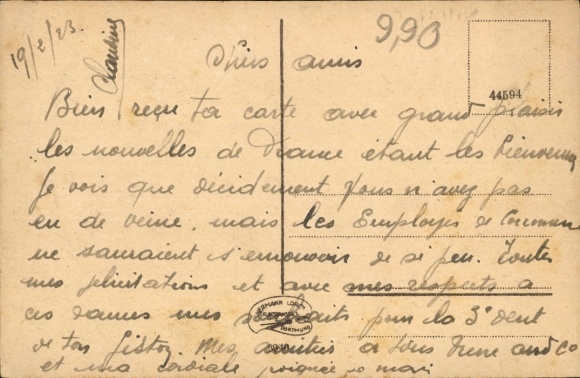 19/2/23.
9,90
Chers amis
44594
Bien reçu ta carte avec grand plaisir
les nouvelles de France étant les bienvenues
Je vois que décidement vous n'avez pas
eu de veine, mais les Employés de Commerce
ne sauraient s'émouvoir de si peu. Toutes
mes félicitations et avec mes respects a
ces dames mes souhaits pour la 3e dent
de ton fiston, Mes amitiés a tous and Co
et ma cordiale poignée de main
HERMANN LORCH
DORTMUND